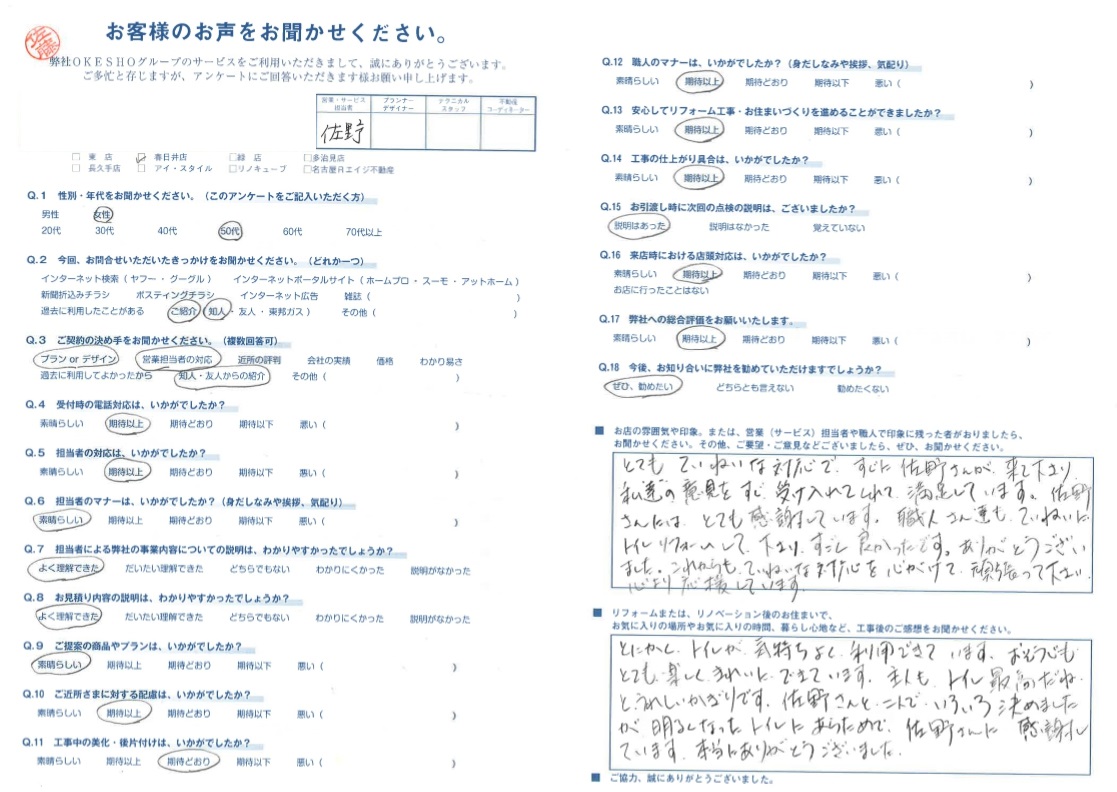 お客様のお声をお聞かせください。
弊社OKESHOグループのサービスをご利用いただきまして、誠にありがとうございます。
ご多忙と存じますが、アンケートにご回答いただきます様お願い申し上げます。
営業・サービス担当者 プランナーデザイナー テクニカルスタッフ 不動産コーディネーター
佐野
□ 東 店 ☑ 春日井店 □ 緑 店 □ 多治見店
□ 長久手店 □ アイ・スタイル □ リノキューブ □ 名古屋月エイジ不動産
Q.1 性別・年代をお聞かせください。（このアンケートをご記入いただく方）
男性 女性
20代 30代 40代 50代 60代 70代以上
Q.2 今回、お問合せいただいたきっかけをお聞かせください。（どれか一つ）
インターネット検索（ ヤフー ・ グーグル ） インターネットポータルサイト（ ホームプロ ・ スーモ ・ アットホーム ）
新聞折込みチラシ ポスティングチラシ インターネット広告 雑誌（ ）
過去に利用したことがある ご紹介（ 知人 ・ 友人 ・ 東邦ガス ） その他（ ）
Q.3 ご契約の決め手をお聞かせください。（複数回答可）
プラン or デザイン 営業担当者の対応 近所の評判 会社の実績 価格 わかり易さ
過去に利用してよかったから 知人・友人からの紹介 その他（ ）
Q.4 受付時の電話対応は、いかがでしたか？
素晴らしい 期待以上 期待どおり 期待以下 悪い（ ）
Q.5 担当者の対応は、いかがでしたか？
素晴らしい 期待以上 期待どおり 期待以下 悪い（ ）
Q.6 担当者のマナーは、いかがでしたか？（身だしなみや挨拶、気配り）
素晴らしい 期待以上 期待どおり 期待以下 悪い（ ）
Q.7 担当者による弊社の事業内容についての説明は、わかりやすかったでしょうか？
よく理解できた だいたい理解できた どちらでもない わかりにくかった 説明がなかった
Q.8 お見積り内容の説明は、わかりやすかったでしょうか？
よく理解できた だいたい理解できた どちらでもない わかりにくかった 説明がなかった
Q.9 ご提案の商品やプランは、いかがでしたか？
素晴らしい 期待以上 期待どおり 期待以下 悪い（ ）
Q.10 ご近所さまに対する配慮は、いかがでしたか？
素晴らしい 期待以上 期待どおり 期待以下 悪い（ ）
Q.11 工事中の美化・後片付けは、いかがでしたか？
素晴らしい 期待以上 期待どおり 期待以下 悪い（ ）
Q.12 職人のマナーは、いかがでしたか？（身だしなみや挨拶、気配り）
素晴らしい 期待以上 期待どおり 期待以下 悪い（ ）
Q.13 安心してリフォーム工事・お住まいづくりを進めることができましたか？
素晴らしい 期待以上 期待どおり 期待以下 悪い（ ）
Q.14 工事の仕上がり具合は、いかがでしたか？
素晴らしい 期待以上 期待どおり 期待以下 悪い（ ）
Q.15 お引渡し時に次回の点検の説明は、ございましたか？
説明はあった 説明はなかった 覚えていない
Q.16 来店時における店頭対応は、いかがでしたか？
素晴らしい 期待以上 期待どおり 期待以下 悪い（ ）
お店に行ったことはない
Q.17 弊社への総合評価をお願いいたします。
素晴らしい 期待以上 期待どおり 期待以下 悪い（ ）
Q.18 今後、お知り合いに弊社を勧めていただけますでしょうか？
ぜひ、勧めたい どちらとも言えない 勧めたくない
■ お店の雰囲気や印象。または、営業（サービス）担当者や職人で印象に残った者がおりましたら、
お聞かせください。その他、ご要望・ご意見などございましたら、ぜひ、お聞かせください。
とても ていねいな対応で、すぐに 佐野さんが、来て下さり
私達の意見をすぐ受け入れてくれて、満足しています。佐野
さんには、とても感謝しています。職人さん達も、ていねいに
トイレリフォームして、下さり、すごく良かったです。ありがとうござい
ました。これからも、ていねいな対応を心がけて、頑張って下さい。
心より応援しています。
■ リフォームまたは、リノベーション後のお住まいで、
お気に入りの場所やお気に入りの時間、暮らし心地など、工事後のご感想をお聞かせください。
とにかく、トイレが、気持ちよく、利用できています。おそうじも
とても楽しく、きれいに、できています。主人も、トイレ最高だね
とうれしいかぎりです。佐野さんと、二人で、いろいろ決めました
が、明るくなったトイレにあらためて、佐野さんに 感謝し
ています。本当にありがとうございました。
■ ご協力、誠にありがとうございました。